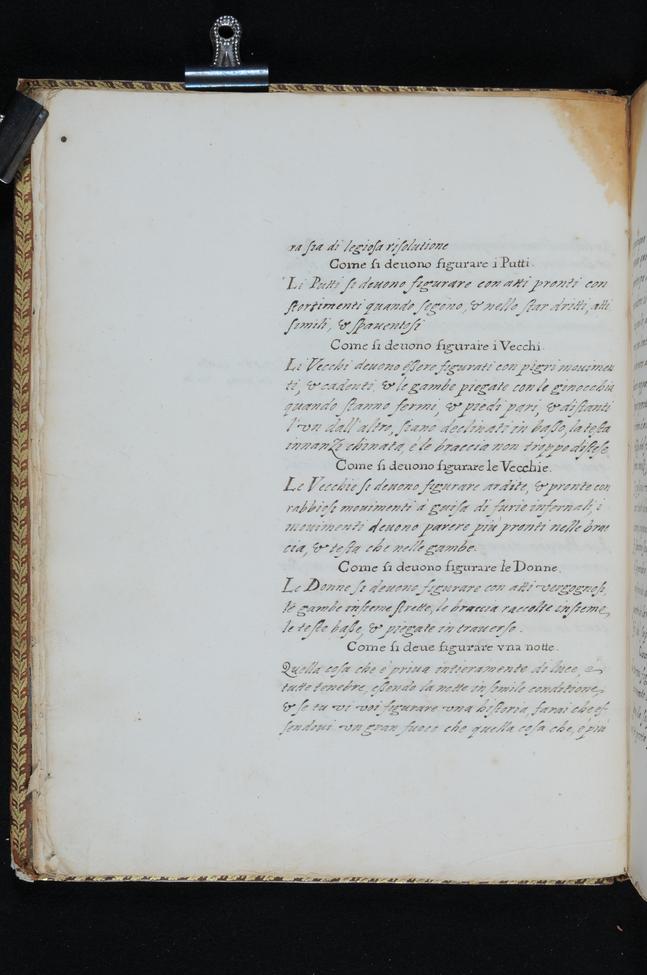 ra sia di legiosa risolutione
Come si deuono figurare i Putti.
Li Putti si deuono figurare con atti pronti con
stortimenti quando segono, & nello star dritti, atti
simili, & spauentosi
Come si deuono figurare i Vecchi.
Li Vecchi deuono essere figurati con pigri mouimen
ti, & cadenti, & le gambe piegate con le ginocchia
quando stanno fermi, & piedi pari, & distanti
l'vn dall'altro, siano declinati in basso, la testa
innanzi chinata, e le braccia non troppo distese
Come si deuono figurare le Vecchie.
Le Vecchie si deuono figurare ardite, & pronte con
rabbiosi mouimenti à guisa di furie infernali, i
mouimenti deuono parere più pronti nelle brac
cia, & testa che nelle gambe.
Come si deuono figurare le Donne.
Le Donne si deuono figurare con atti vergognosi,
le gambe insieme strette, le braccia raccolte insieme,
le teste basse, & piegate in trauerso.
Come si deue figurare vna notte.
Quella cosa che è priua intieramente di luce, è
tutte tenebre, essendo la notte in simile conditione,
& se tu vi voi figurare vna historia, farai che es
sendoui vn gran fuoco che quella cosa che, è più